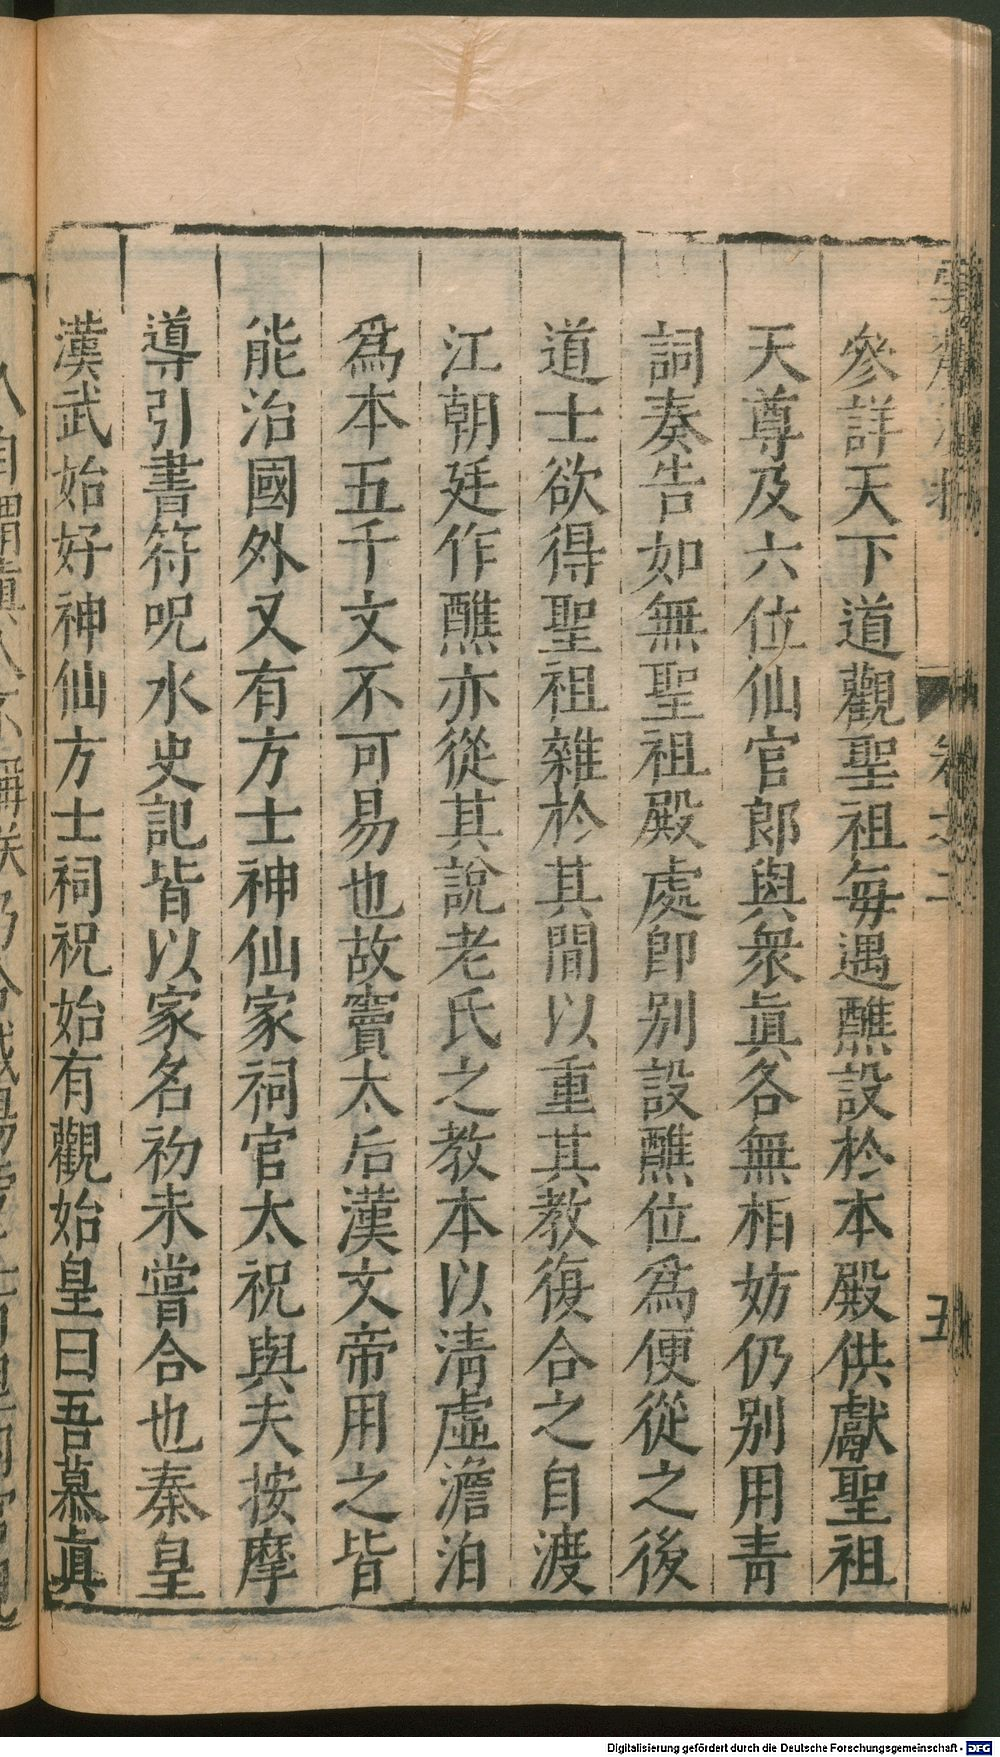 參詳天下道觀聖祖每遇醮設於本殿供獻聖祖
天尊及六位仙官郎與衆眞各無相妨仍别用靑
詞奏告如無聖祖殿處卽别設醮位爲便從之後
道士欲得聖祖雜於其間以重其教復合之自渡
江朝廷作醮亦從其說老氏之教本以清虛澹泊
爲本五千文不可易也故竇太后漢文帝用之皆
能治國外又有方士神仙家祠官太祝與夫按摩
導引書符呪水史記皆以家名初未嘗合也秦皇
漢武始好神仙方士祠祝始有觀始皇曰吾慕眞
人自謂眞人不稱朕乃令咸陽
五
Digitalisierung gefördert durch die Deutsche Forschungsgemeinschaft - DFG